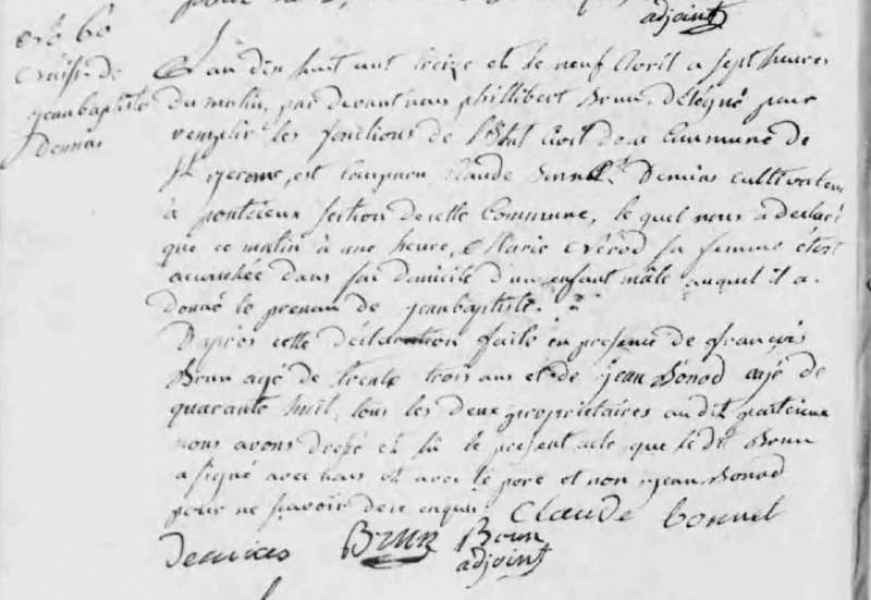 adjoint
No 60
Naiss. de
jeanbaptiste
L'an dix huit cent treize et le neuf Avril a sept heures
du matin, par devant nous phillibert Brun, délégué pour
remplir les fonctions de l'Etat Civil de la Commune de
St jerome, est comparu Claude cultivateur
à section de cette Commune, le quel nous a déclaré
que ce matin à une heure, Marie sa femme étoit
accouchée dans son domicile d'un enfant mâle auquel il a
donné le prenom de jeanbaptiste.
D'après cette déclaration faite en presence de françois
Brun agé de trente trois ans et de jean Bonod agé de
quarante huit, tous les deux propriétaires au dit
nous avons dressé et lu le present acte, que le dit Brun
a signé avec nous et avec le pere et non jean Bonod
pour ne savoir de ce enquis Claude bonnet
Brun Brun
adjoint